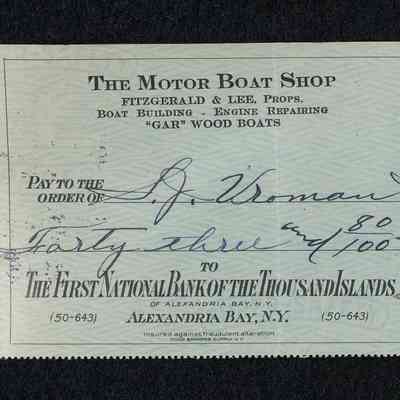 THE MOTOR BOAT SHOP
FITZGERALD & LEE, PROPS.
BOAT BUILDING - ENGINE REPAIRING
"GAR" WOOD BOATS
PAY TO THE
ORDER OF S. J. Vroman
Forty three and 80/100
TO
THE FIRST NATIONAL BANK OF THE THOUSAND ISLANDS
OF ALEXANDRIA BAY, N.Y.
(50-643) ALEXANDRIA BAY, N.Y. (50-643)
insured against fraudulent alteration